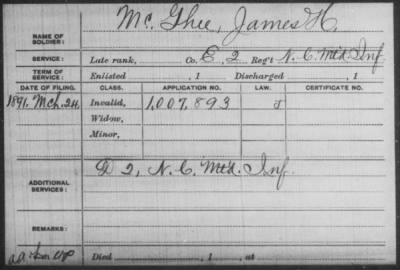 NAME OF SOLDIER: Mc. Ghee, James H.
SERVICE: Late rank, Co. E, 2 Reg't N. C. Mt'd. Inf.
TERM OF SERVICE: Enlisted , 1 Discharged , 1
DATE OF FILING. CLASS. APPLICATION NO. LAW. CERTIFICATE NO.
1891. Mch. 24. Invalid, 1,007,893
Widow,
Minor,
ADDITIONAL SERVICES: D 2, N. C. Mt'd. Inf.
REMARKS:
Died , 1 , at